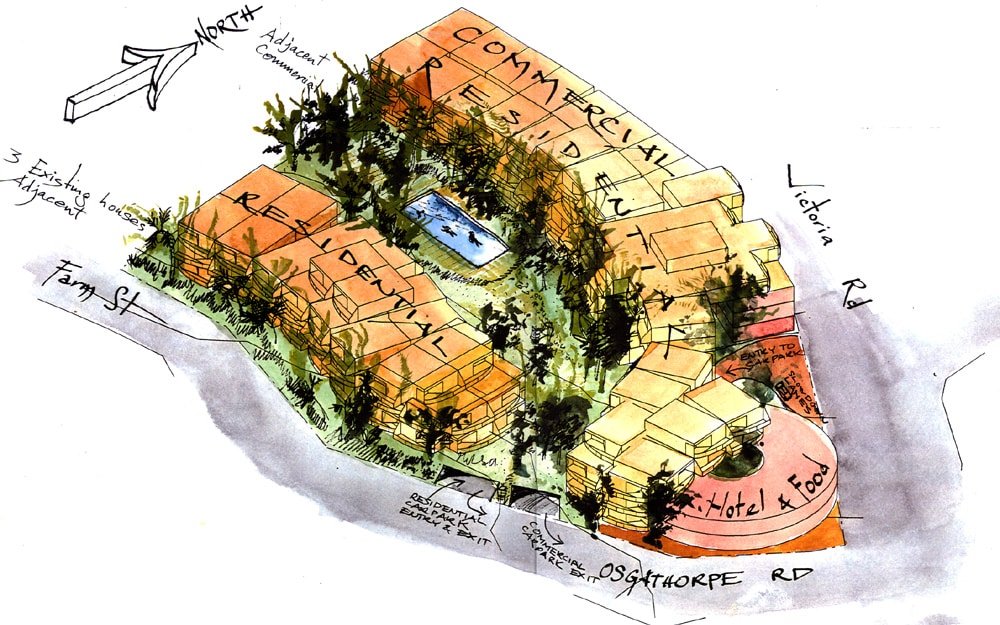 NORTH
Adjacent
Commercial
COMMERCIAL
RESIDENTIAL
3 Existing houses
Adjacent
RESIDENTIAL
Farm St
Victoria Rd
ENTRY TO
CARPARK
Hotel & Food
RESIDENTIAL
CARPARK
ENTRY & EXIT
COMMERCIAL
CARPARK EXIT
OSGATHORPE RD